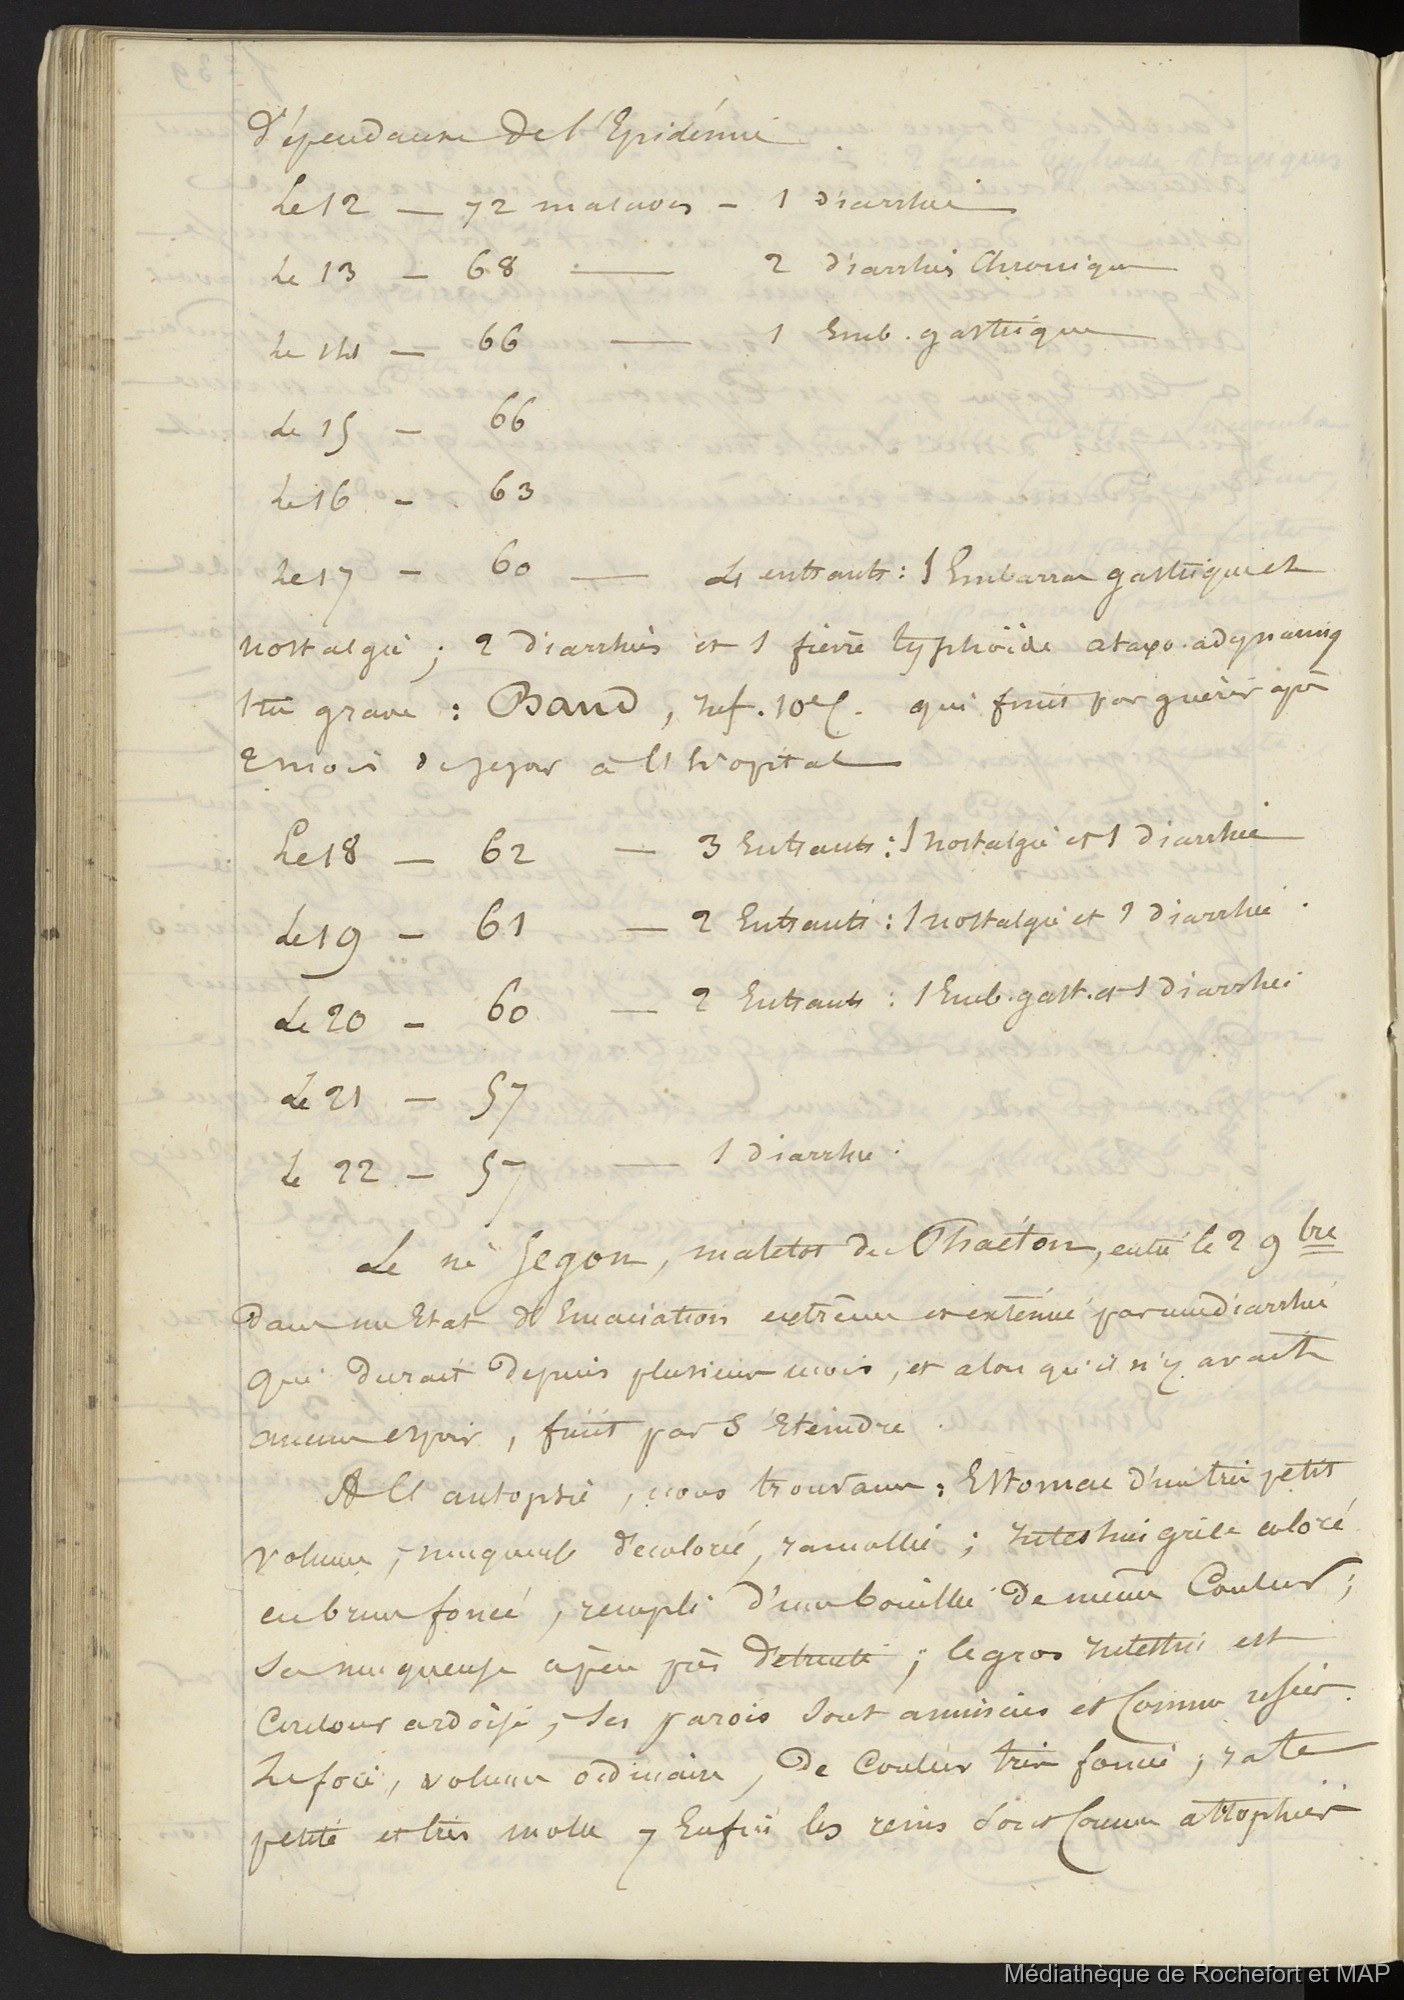 dépendance de l'Epidémie.
Le 12 — 72 malades – 1 diarrhée
Le 13 — 68 — 2 diarrhées Chroniques
Le 14 — 66 — 1 Emb. gastrique
Le 15 — 66
Le 16 – 63
Le 17 – 60 — 4 entrants : 1 Embarras gastrique et
nostalgie ; 2 diarrhées et 1 fièvre typhoïde ataxo-adynamiq
très grave : Baud, qui finit par guérir après
2 mois de séjour à l'hôpital
Le 18 — 62 — 3 Entrants : 1 nostalgie et 1 diarrhée
Le 19 – 61 — 2 Entrants : 1 nostalgie et 1 diarrhée.
Le 20 – 60 — 2 Entrants : 1 Emb. gast. et 1 diarrhée.
Le 21 — 57
Le 22 – 57 — 1 diarrhée.
Le né Jegou, matelot du Phaéton, entré le 2 9bre
dans un Etat d'Emaciation extrême et exténué par une diarrhée
qui durait depuis plusieurs mois, et alors qu'il n'y avait
aucun espoir, finit par s'Eteindre.
A l'autopsie, nous trouvâmes : Estomac d'un très petit
volume, muqueuse décolorée, ramollie ; Intestin grêle coloré
en brun foncé, rempli d'une bouillie de même Couleur ;
sa muqueuse à peu près détruite ; le gros Intestin est
Couleur ardoisée, ses parois sont amincies et Comme
Le foie, volume ordinaire, de Couleur très foncée ; rate
petite et très molle ; Enfin les reins sont Comme atrophiés
Médiathèque de Rochefort et MAP